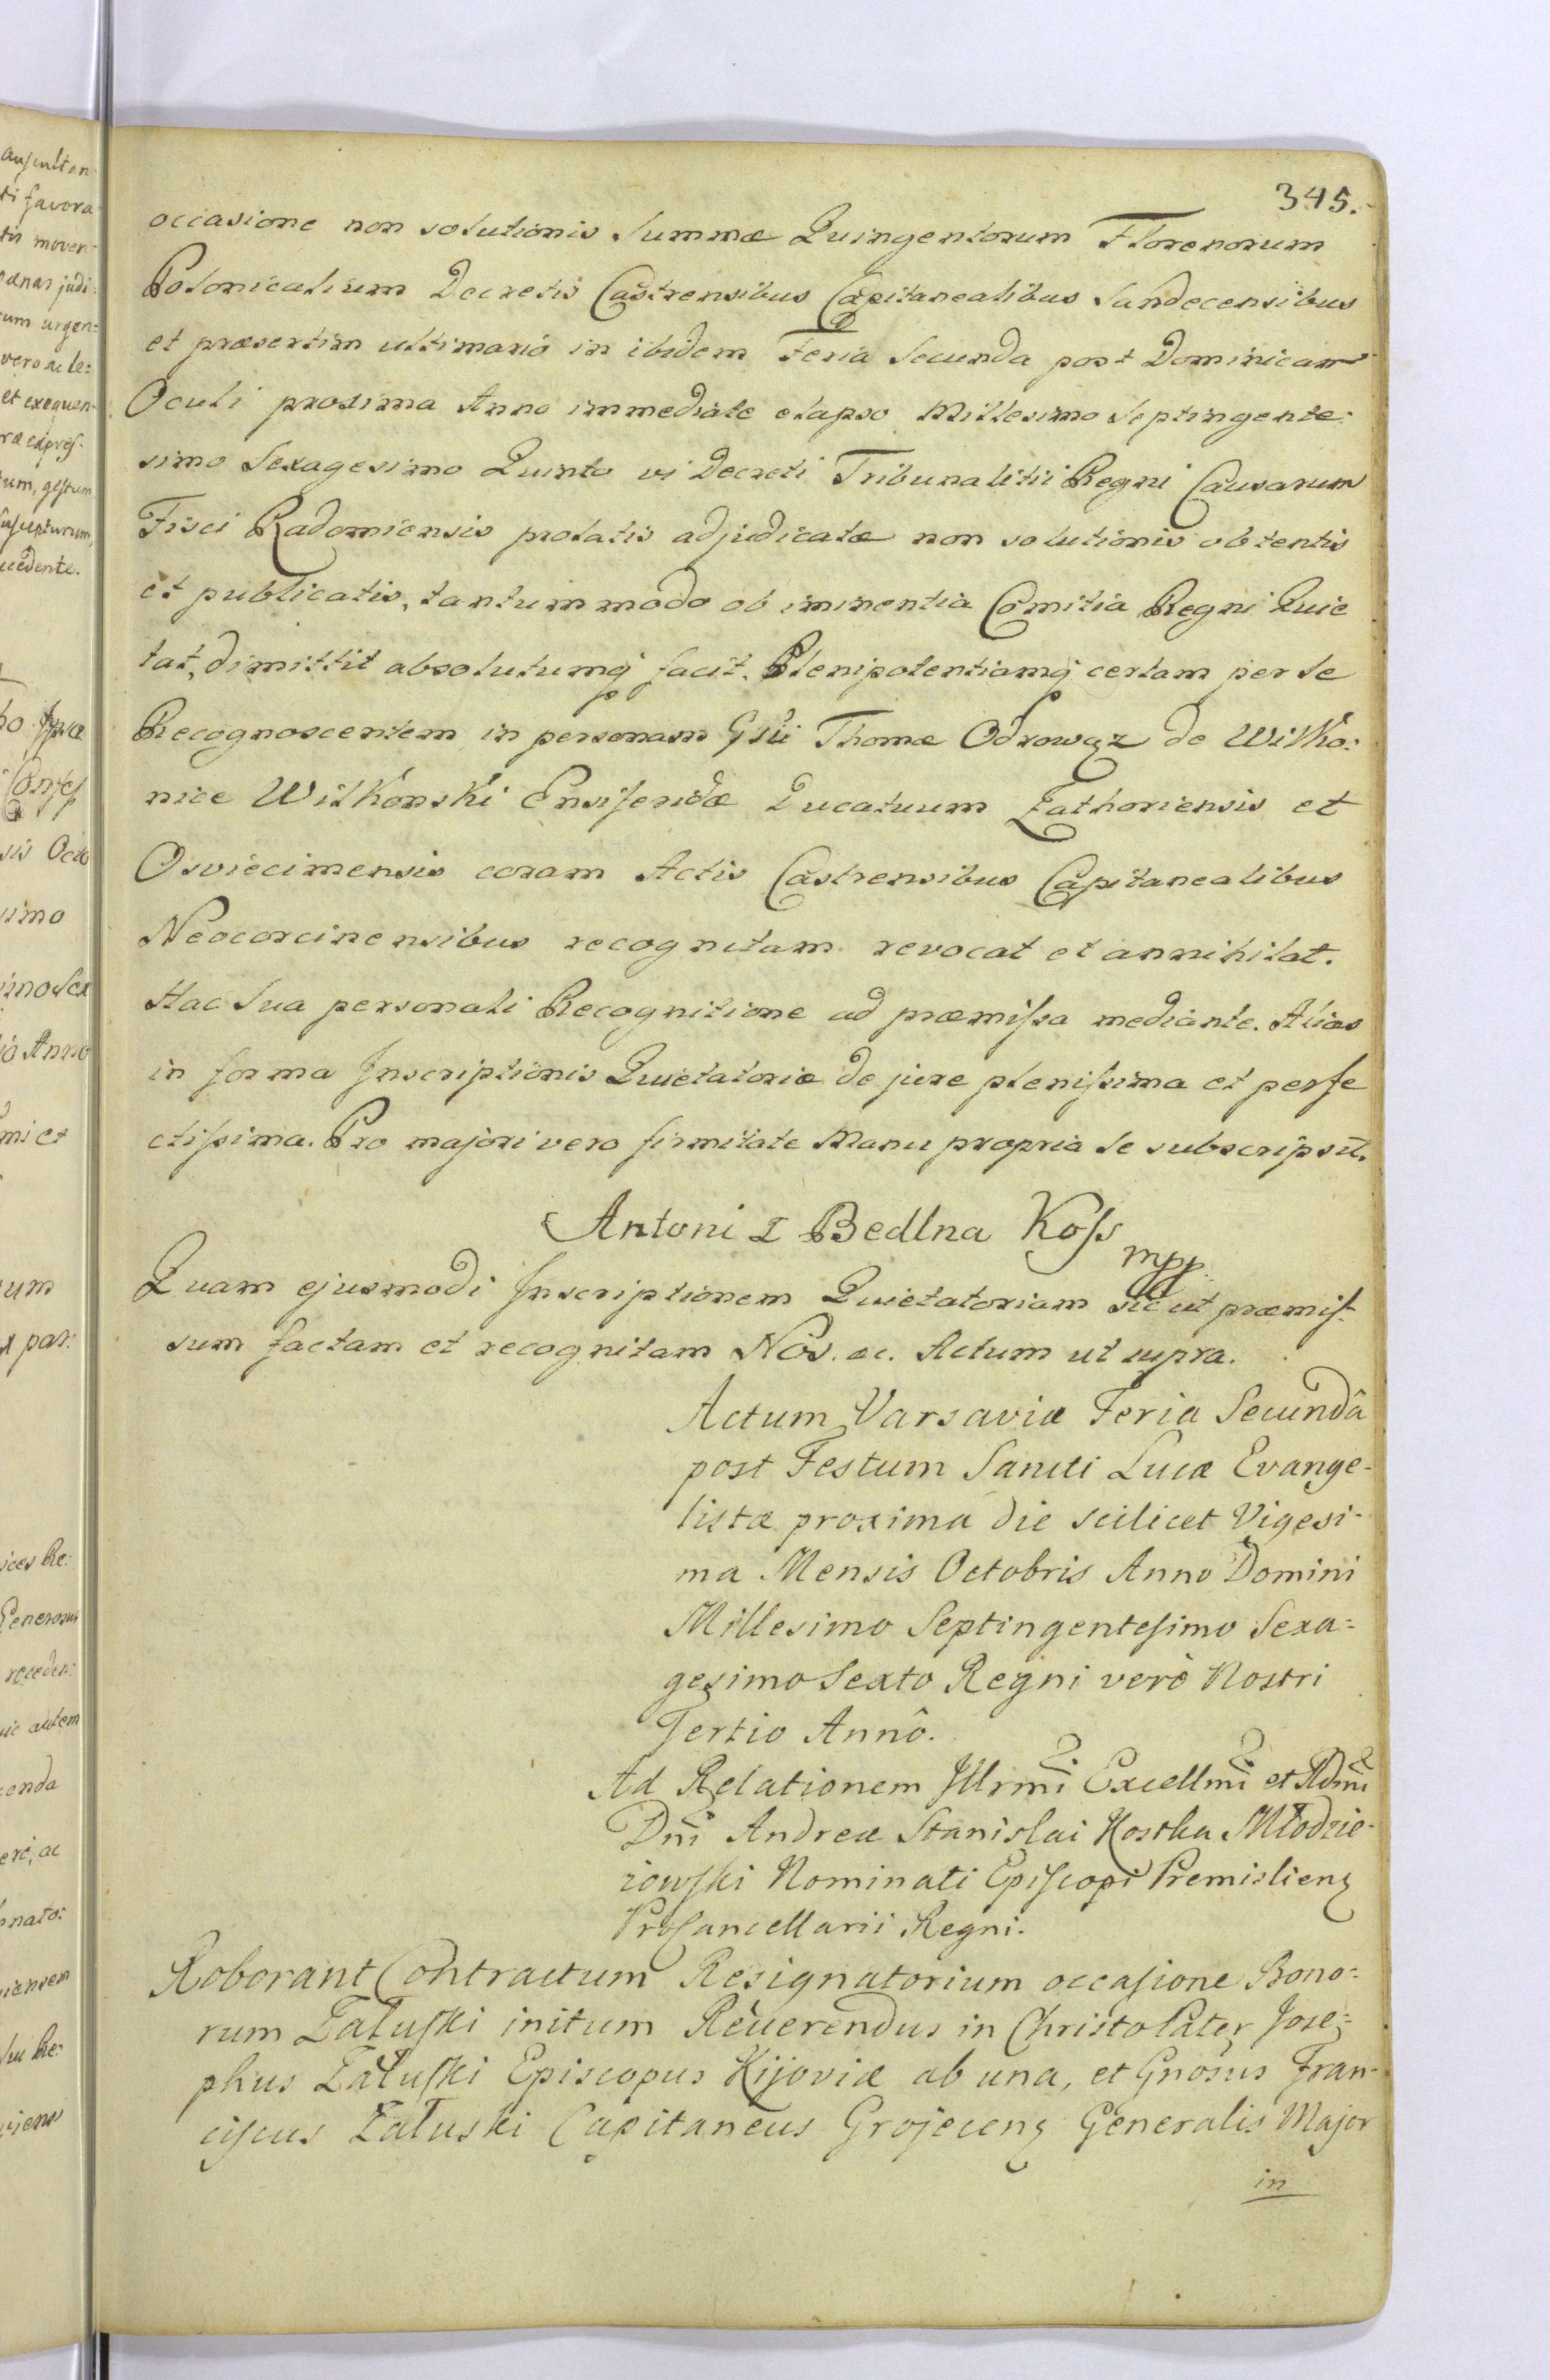 345.
occasione non solutionis Summæ Quingentorum Florenorum
Polonicalium Decretis Castrensibus Capitanealibus Sandecensibus
et præsertim ultimario in ibidem Feria Secunda post Dominicam
Oculi proxima Anno immediate elapso Millesimo Septingente:
simo Sexagesimo Quinto vi Decreti Tribunalitii Regni Causarum
Fisci Radomiensis prolatis adjudicatæ non solutionis obtentis
et publicatis, tantummodo ob iminentia Comitia Regni Quie
tat, dimittit absolutumq facit. Plenipotentiamq certam per se
Recognoscentem in personam Gsii Thomæ Odrowąz de Witko:
nice Witkonski Ensiferidæ Ducatuum Zathoriensis et
Osviecimensis coram Actis Castrensibus Capitanealibus
Neocorcinensibus recognitam revocat et annihilat.
Hac Sua personali Recognitione ad præmiſsa mediante. Alias
in forma Inscriptionis Quietatoriæ de jure pleniſsima et perfe
ctiſsima. Pro majori vero firmitate Manu propria se subscripsit.
Antoni z Bedlna Koſs
mpp.
Quam ejusmodi Inscriptionem Quietatoriam sicut præmiſ-
sum factam et recognitam Nos. ac. Actum ut supra.
Actum Varsaviæ Feria Secundâ
post Festum Sancti Lucæ Evange-
listæ proxima die scilicet Vigesi-
ma Mensis Octobris Anno Domini
Millesimo Septingenteſimo Sexa=
gesimo Sexto Regni verò Nostri
Tertio Annô.
Ad Relationem Jllrmi Excellmi et Rdmi
Dni Andreæ Stanislai Kostka Młodzie-
iowſki Nominati Epiſcopi Premislienς
ProCancellarii Regni.
Roborant Contractum Resignatorium occaſione Bono=
rum Załuſki initum Reverendus in Christo Pater Jose=
phus Załuſki Episcopus Kijoviæ ab una, et Gnosus Fran-
ciſcus Załuski Capitaneus Grojecenς Generalis Major
in